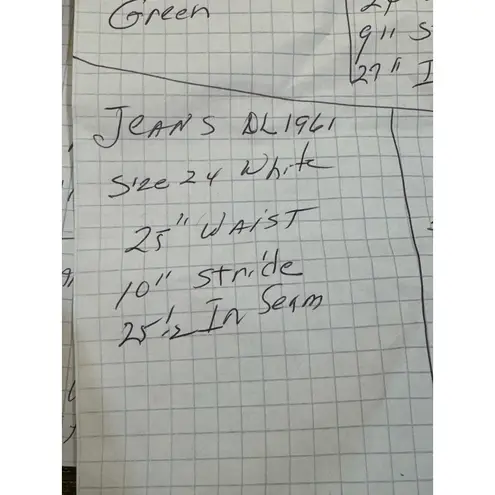 Green
9"
27"
JEANS DL1961
Size 24 White
25" WAIST
10" Stride
25 1/2 In Seam